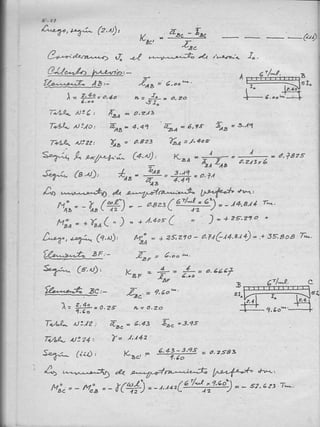 Luego, según (2.N),
K_BC' = (ā_BC − b̄_BC) / L_BC — — — (iii)
Consideramos J₀ el momento de inercia I₀.
Cálculos previos:-
Elemento AB:- L_AB = 6.00 m.
λ = 2.40/6.00 = 0.40 n = I₀/5I₀ = 0.20
Tabla N°6: β_BA = 0.213
Tabla N°10: ā_AB = 4.49 ā_BA = 6.95 b̄_AB = 3.19
Tabla N°22: γ_AB = 0.823 γ_BA = 1.405
Según la expresión (4.N): K_BA = 1/(β_BA L_AB) = 1/(0.213×6) = 0.7825
Según (8.N): t_AB = b̄_AB/ā_AB = 3.19/4.49 = 0.71
Los momentos de empotramiento perfecto son:
M°_AB = - γ_AB (ωL²/12) = - 0.823 (6 T/ml × 6²/12) = -14.814 Tm.
M°_BA = + γ_BA ( = ) = + 1.405 ( ) = + 25.290 "
Luego, según (9.N): M°_BA = + 25.290 - 0.71(-14.814) = + 35.808 Tm.
Elemento BF:- L_BF = 6.00 m.
Según (5.N): K_BF = 4/L_BF = 4/6.00 = 0.6667
Elemento BC:- L_BC = 9.60 m.
λ = 2.40/9.60 = 0.25 n = 0.20
Tabla N°12: ā_BC = 6.43 b̄_BC = 3.95
Tabla N°24: γ = 1.142
Según (iii): K_BC' = (6.43 - 3.95)/9.60 = 0.2583
Los momentos de empotramiento perfecto son:
M°_BC = - M°_CB = - γ(ωL²/12) = -1.142(6 T/ml × 9.60²/12) = - 52.623 Tm.
A 6 T/ml B
6.00 m.
B 6 T/ml C
2.4 I₀ 2.4
9.60 m.